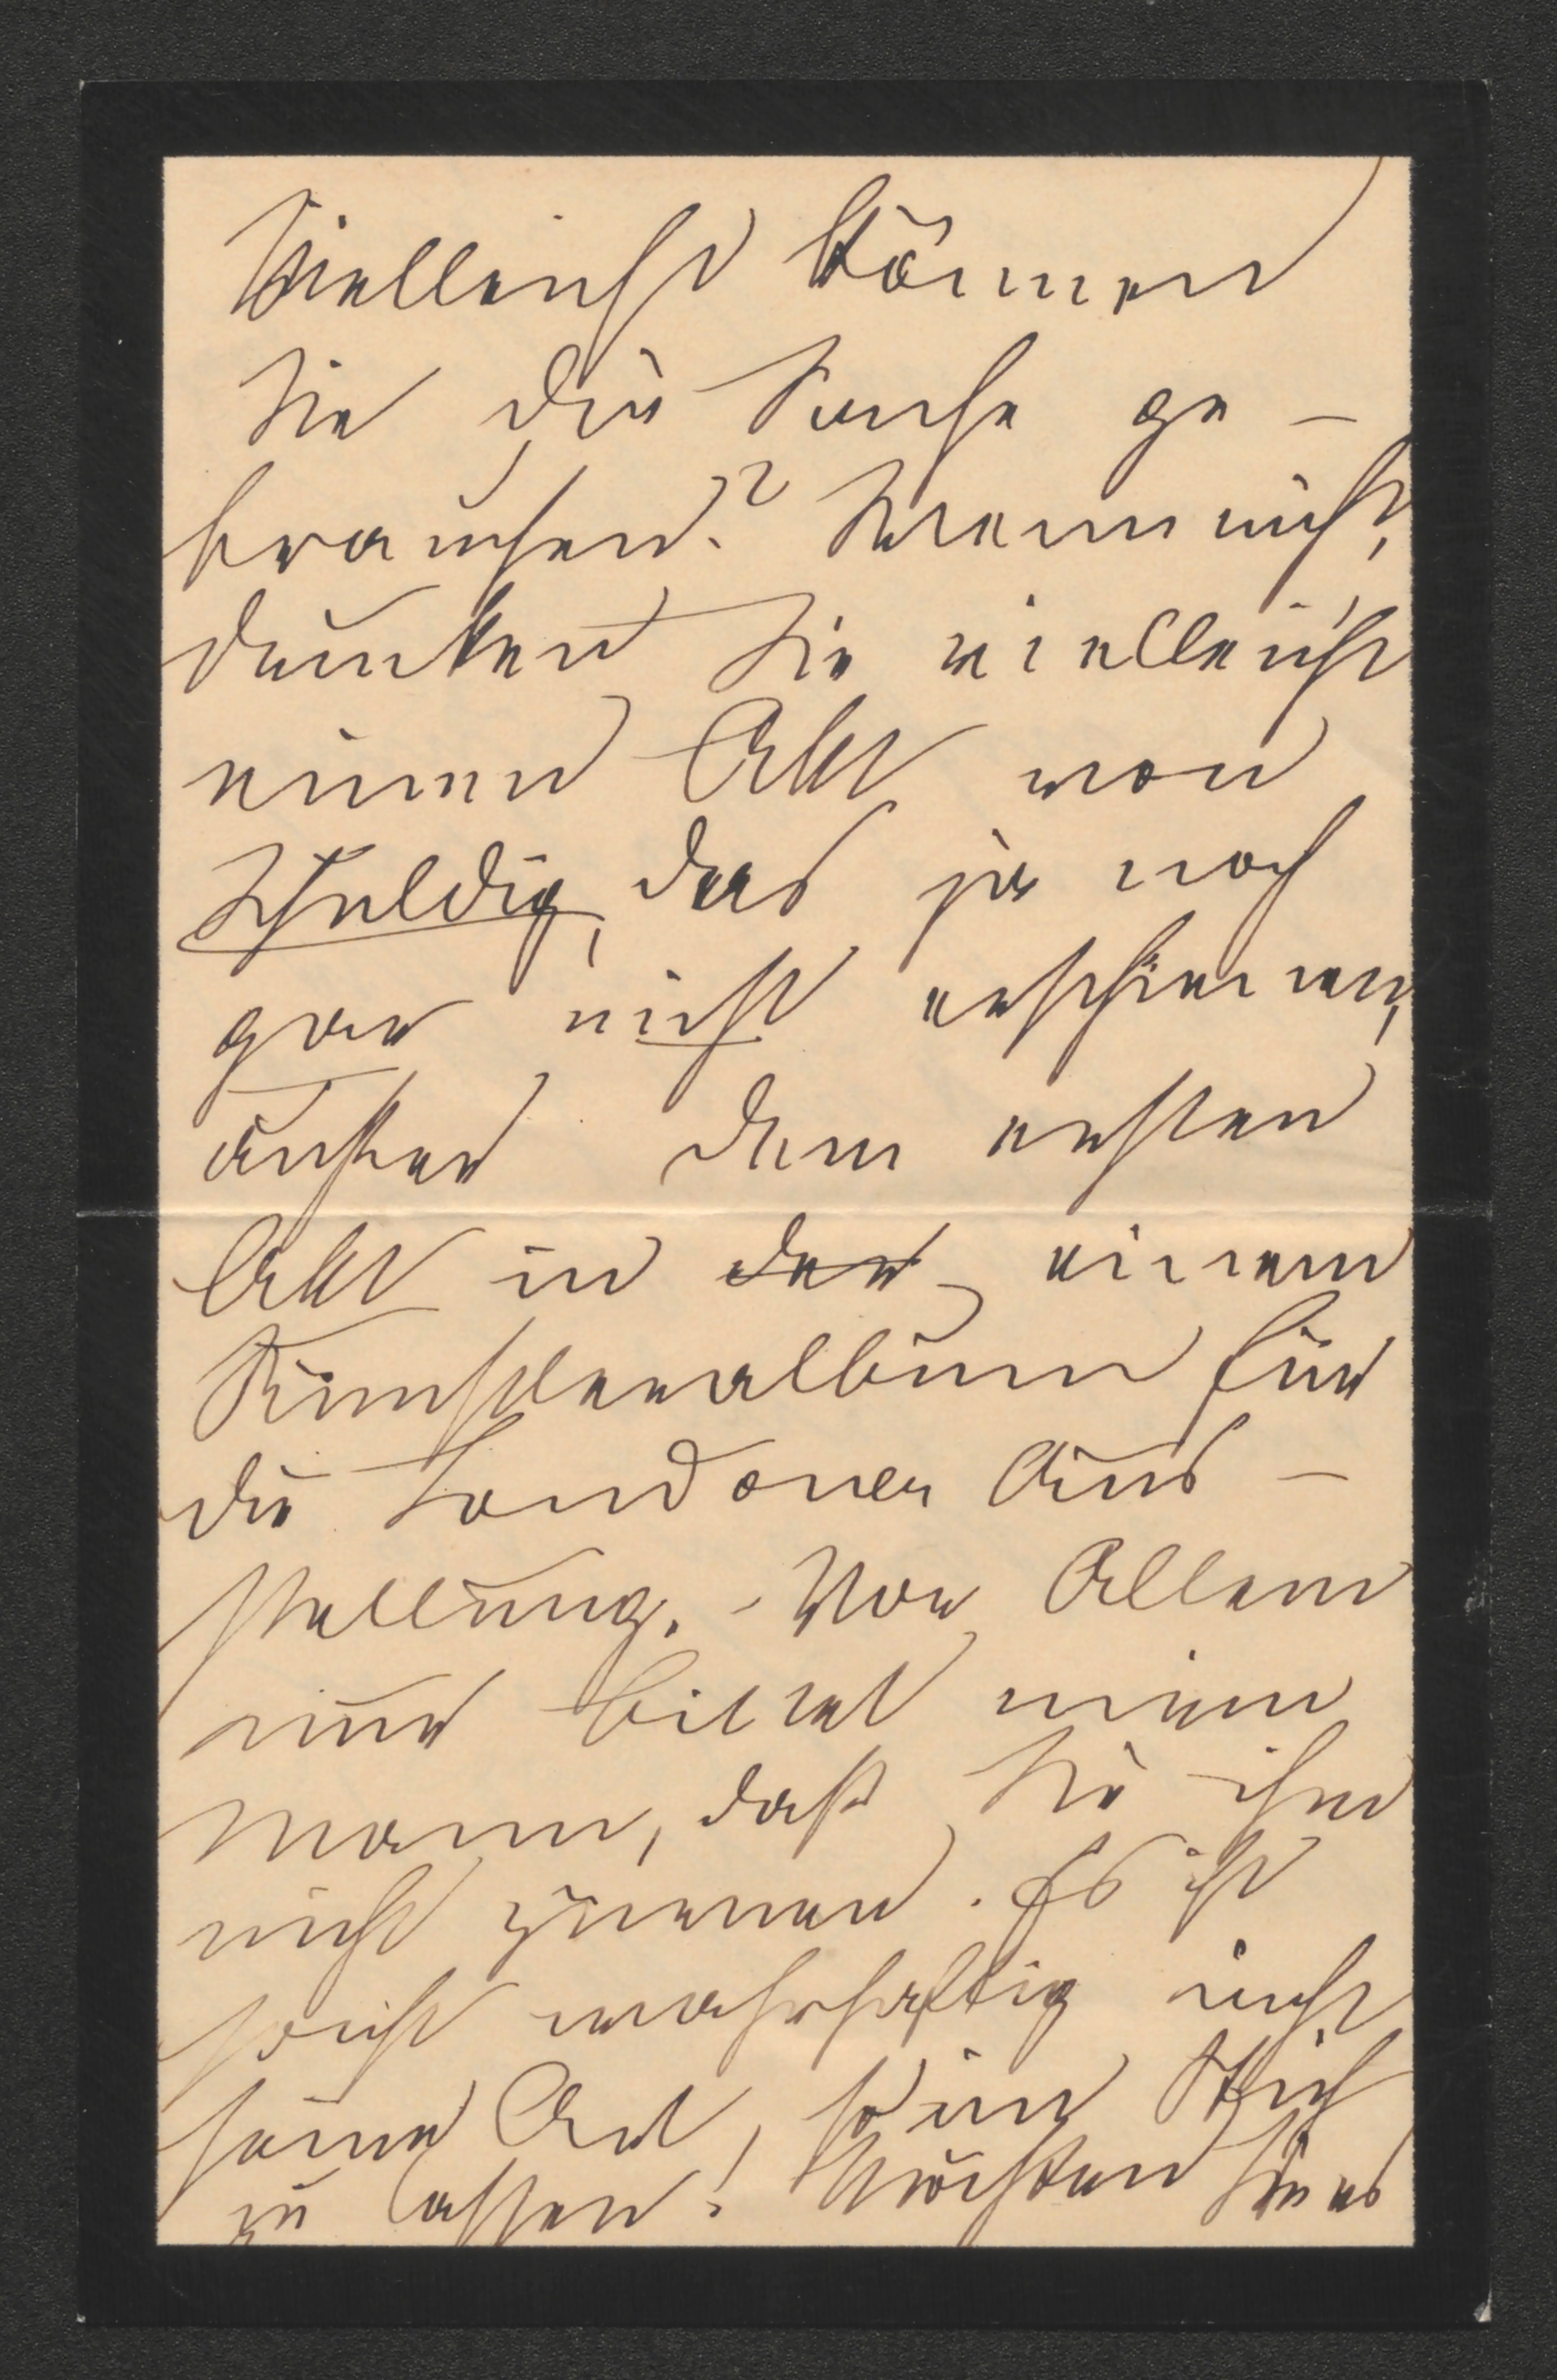 Vielleicht können
Sie die Sache ge-
brauchen? Wenn nicht,
drucken Sie vielleicht
einen Akt von
Schuldig, das ja noch
gar nicht erschienen,
außer dem ersten
Akt in der einem
Künstleralbum für
die Londoner Aus-
stellung. - Vor Allem
nur bittet mein
Mann, daß Sie ihm
nicht zürnen. Es ist
sonst wahrhaftig nicht
seine Art, so im Stich
zu lassen! Möchten Sie es